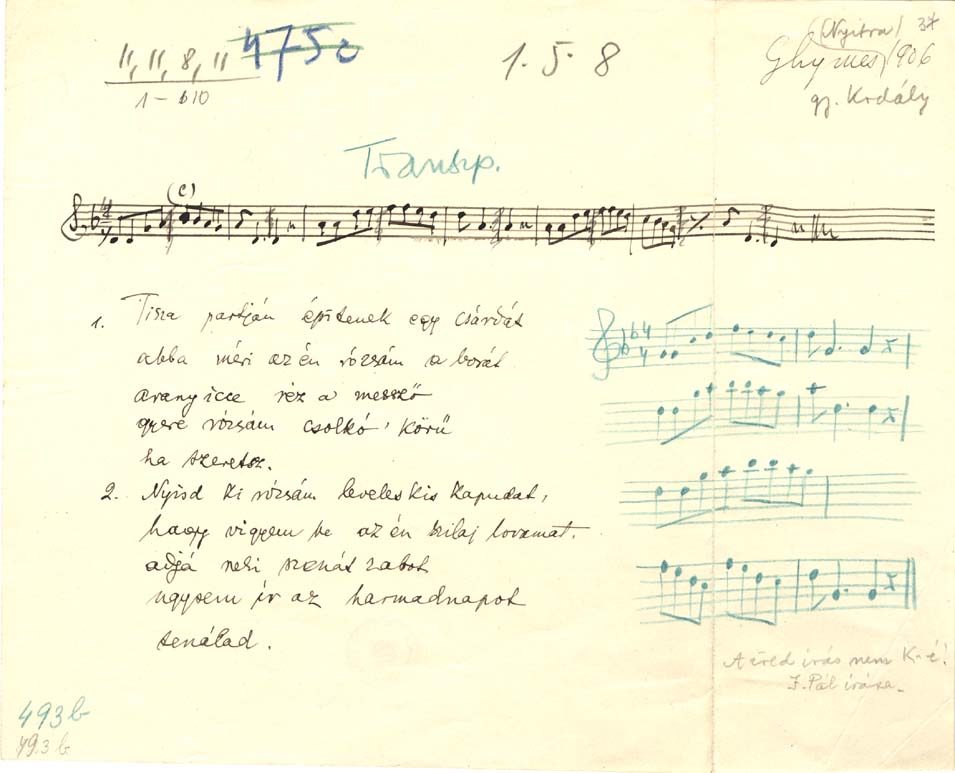 11, 11, 8, 11
475c
1-b10
1. 5. 8
(Nyitra) 37
Ghymes 906
gy. Kodály
Transp.
(c)
1. Tisza partján építenek egy csárdát
abba méri az én rózsám a borát
arany icce réz a messző
gyere rózsám csolkó' körű
ha szeretsz.
2. Nyisd ki rózsám leveles kis kapudat,
hagy vigyem be az én szilaj lovamat.
adjá neki szenát zabot
ugysem ír az harmadnapot
tenálad.
A ered írás nem K-é!
I. Pál írása.
493b
493b